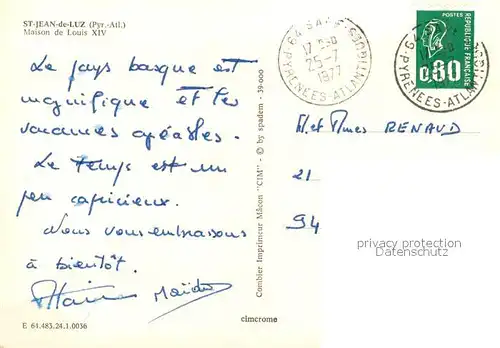 ST-JEAN-de-LUZ (Pyr.-Atl.)
Maison de Louis XIV
Le pays basque est
magnifique et les
vacances agréables.
Le temps est un
peu capricieux.
Nous vous embrassons
à bientôt.
Maïder
E 61.483.24.1.0036
Combier Imprimeur Mâcon "CIM" - © by spadem - 39-000
cimcrome
64
25-7
1977
PYRENEES-ATLANTIQUES
POSTES
REPUBLIQUE FRANÇAISE
0,80
PYRENEES-ATLANTIQUES
M. et Mmes RENAUD
21
94
privacy protected
Datenschutz